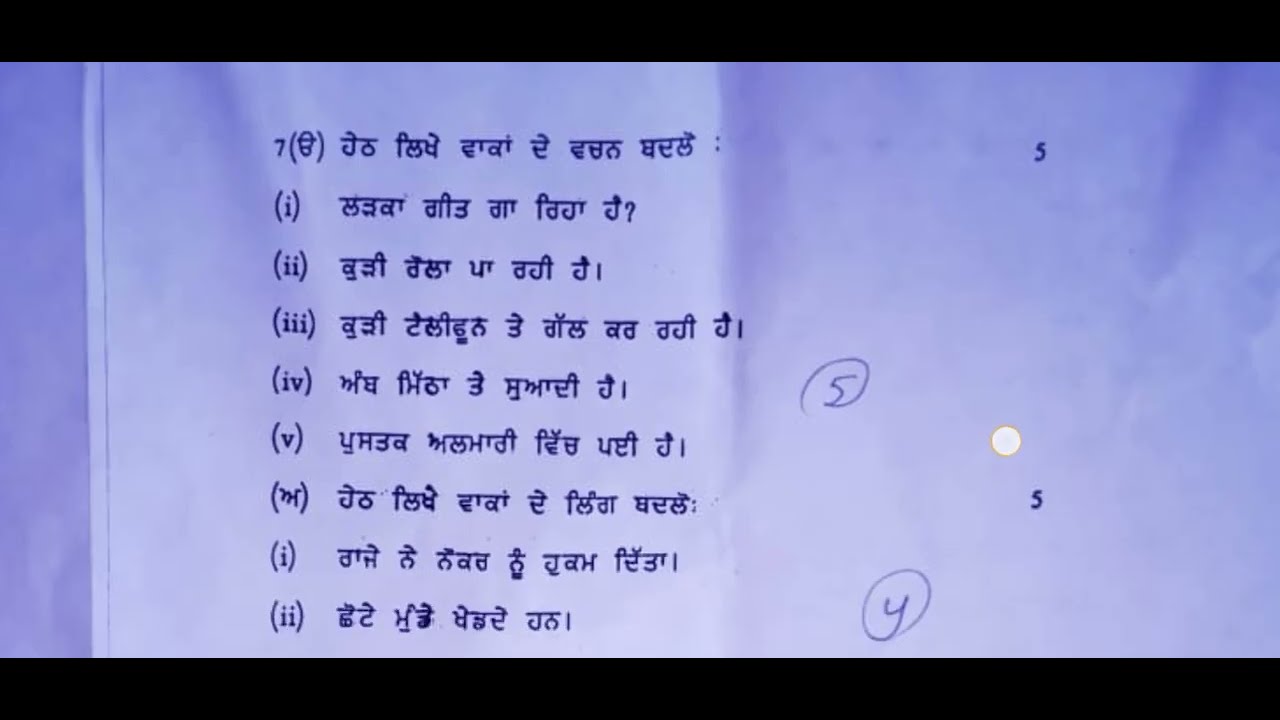 7(ੳ) ਹੇਠ ਲਿਖੇ ਵਾਕਾਂ ਦੇ ਵਚਨ ਬਦਲੋ : 5
(i) ਲੜਕਾ ਗੀਤ ਗਾ ਰਿਹਾ ਹੈ?
(ii) ਕੁੜੀ ਰੌਲਾ ਪਾ ਰਹੀ ਹੈ।
(iii) ਕੁੜੀ ਟੈਲੀਫੂਨ ਤੇ ਗੱਲ ਕਰ ਰਹੀ ਹੈ।
(iv) ਅੰਬ ਮਿੱਠਾ ਤੇ ਸੁਆਦੀ ਹੈ।
5
(v) ਪੁਸਤਕ ਅਲਮਾਰੀ ਵਿੱਚ ਪਈ ਹੈ।
(ਅ) ਹੇਠ ਲਿਖੇ ਵਾਕਾਂ ਦੇ ਲਿੰਗ ਬਦਲੋ: 5
(i) ਰਾਜੇ ਨੇ ਨੌਕਰ ਨੂੰ ਹੁਕਮ ਦਿੱਤਾ।
(ii) ਛੋਟੇ ਮੁੰਡੇ ਖੇਡਦੇ ਹਨ।